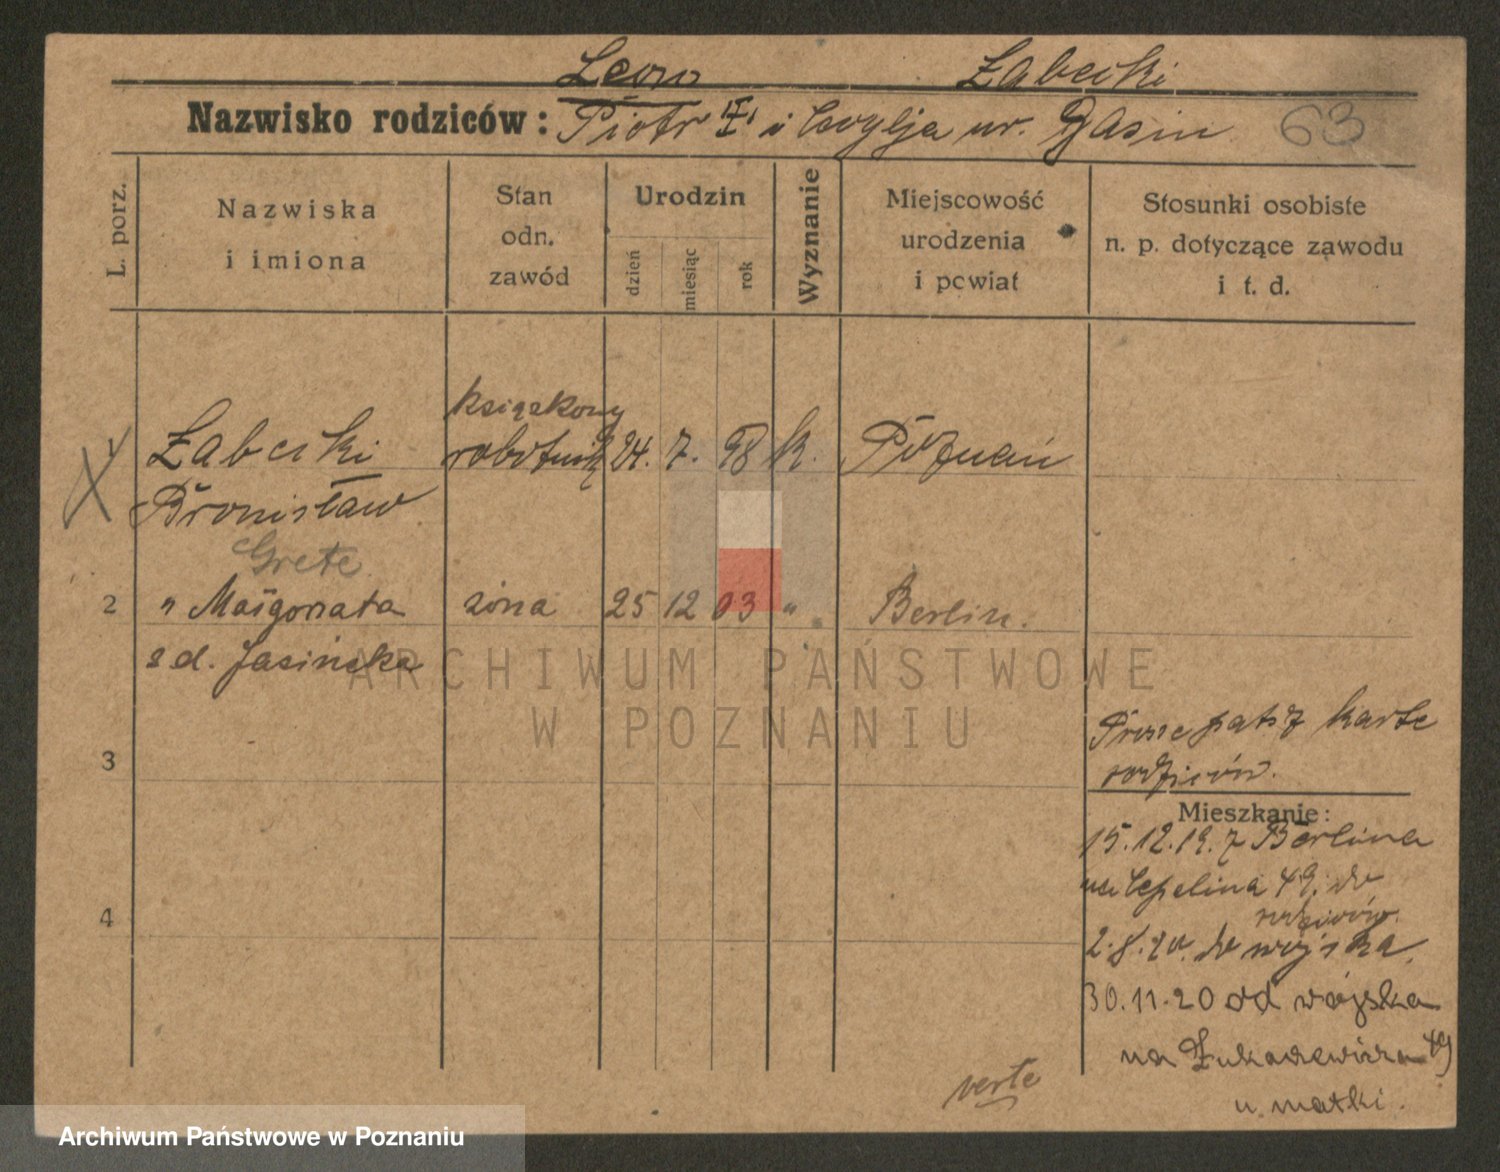 Leon Żabecki
Nazwisko rodziców: Piotr i ur. 63
L. porz.
Nazwiska
i imiona
Stan
odn.
zawód
Urodzin
dzień
miesiąc
rok
Wyznanie
Miejscowość
urodzenia
i powiat
Stosunki osobiste
n. p. dotyczące zawodu
i t. d.
1 Żabecki robotnik 24. 7. 98 k. Poznań
Bronisław
Grete
2 " Małgorzata żona 25 12 03 " Berlin.
z d. Jasińska
ARCHIWUM PAŃSTWOWE
W POZNANIU
3
Proszę patrz kartę
rodziców.
Mieszkanie:
15.12.19. z Berlina
49. do
rodziców.
4
2.8.20. do wojska.
30.11.20 od wojska
na Łukaszewicza 49
u matki.
verte
Archiwum Państwowe w Poznaniu